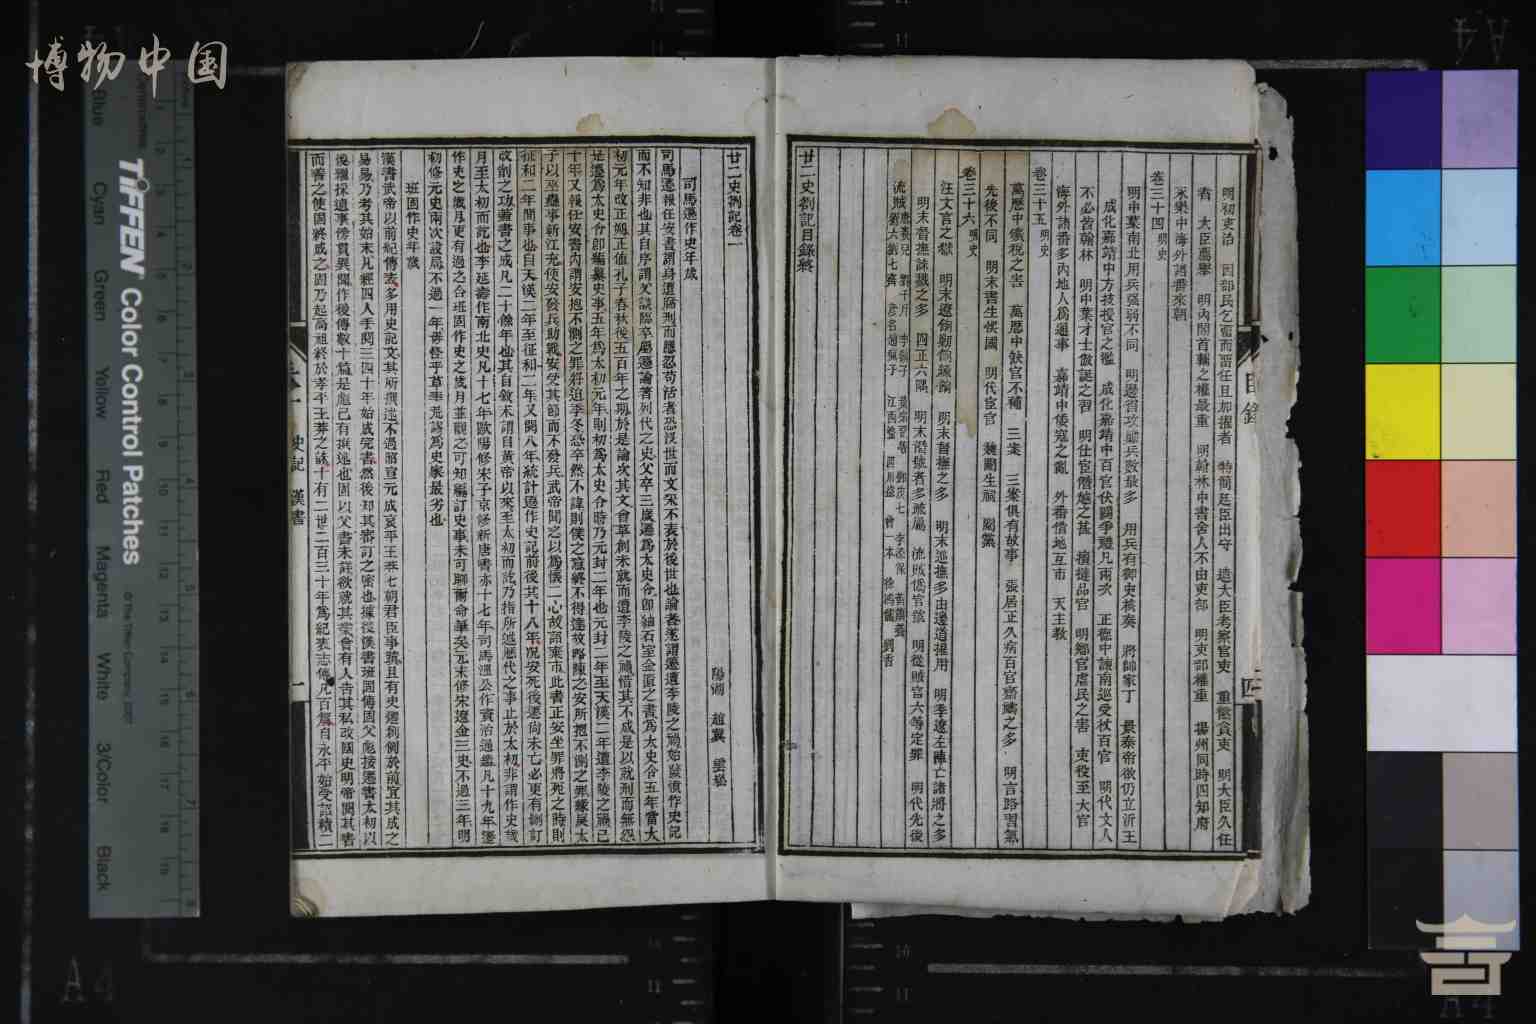 博物中国
明初吏治　因部民乞留而留任且加擢者　特簡廷臣出守　遣大臣考察官吏　重懲貪吏　明大臣久任
者　大臣薦舉　明內閣首輔之權最重　明翰林中書舍人不由吏部　明吏部權重　揚州同時四知府
永樂中海外諸番來朝
卷三十四明史
明中葉南北用兵強弱不同　明邊省攻勦兵數最多　用兵有御史核奏　將帥家丁　景泰帝欲仍立沂王
成化嘉靖中方技授官之濫　成化嘉靖中百官伏闕爭禮凡兩次　正德中諫南巡受杖百官　明代文人
不必皆翰林　明中葉才士傲誕之習　明仕宦僭越之甚　擅撻品官　明鄉官虐民之害　吏役至大官
海外諸番多內地人為通事　嘉靖中倭寇之亂　外番借地互市　天主教
卷三十五明史
萬歷中礦稅之害　萬歷中缺官不補　三案　三案俱有故事　張居正久病百官齋禱之多　明言路習氣
先後不同　明末書生誤國　明代宦官　魏閹生祠　閹黨
卷三十六明史
汪文言之獄　明末遼餉勦餉練餉　明末督撫之多　明末巡撫多由邊道擢用　明季遼左陣亡諸將之多
明末督撫誅戮之多　四正六隅　明末僭號者多疏屬　流賊僞官號　明從賊官六等定罪　明代先後
流賊唐賽兒　劉千斤　李鬍子　葉宗留等　鄧茂七　李添保　黃蕭養
劉六劉七齊彥名趙瘋子　江西盜　四川盜　曾一本　徐鴻儒　劉香
廿二史劄記目錄終
目錄
四
廿二史劄記卷一
陽湖　趙翼　雲崧
司馬遷作史年歲
司馬遷報任安書謂身遭腐刑而隱忍苟活者恐沒世而文采不表於後世也論者遂謂遷遭李陵之禍始發憤作史記
而不知非也其自序謂父談臨卒屬遷論著列代之史父卒三歲遷為太史令卽紬石室金匱之書為太史令五年當太
初元年改正朔正值孔子春秋後五百年之期於是論次其文會草創未就而遭李陵之禍惜其不成是以就刑而無怨
是遷為太史令卽編纂史事五年為太初元年則初為太史令時乃元封二年也元封二年至天漢二年遭李陵之禍已
十年又報任安書內謂安抱不測之罪將迫季冬恐卒然不諱則僕之意終不得達故略陳之安所抱不測之罪緣戾太
子以巫蠱事斬江充使安發兵助戰安受其節而不發兵武帝聞之以為懷二心故詔棄市此書正安坐罪將死之時則
征和二年間事也自天漢二年至征和二年又閱八年統計遷作史記前後共十八年況安死後遷尚未亡必更有刪訂
改削之功蓋書之成凡二十餘年也其自敘末謂自黃帝以來至太初而訖乃指所述歷代之事止於太初非謂作史歲
月至太初而訖也李延壽作南北史凡十七年歐陽修宋子京修新唐書亦十七年司馬溫公作資治通鑑凡十九年遷
作史之歲月更有過之合班固作史之歲月並觀之可知編訂史事未可聊爾命筆矣元末修宋遼金三史不過三年明
初修元史兩次設局不過一年毋怪乎草率荒謬為史家最劣也
班固作史年歲
漢書武帝以前紀傳表多用史記文其所撰述不過昭宣元成哀平王莽七朝君臣事蹟且有史遷創例於前宜其成之
易易乃考其始末凡經四人手閱三四十年始成完書然後知其審訂之密也據後漢書班固傳固父彪接遷書太初以
後繼採遺事傍貫異聞作後傳數十篇是彪已有撰述也固以父書未詳欲就其業會有人告其私改國史明帝閱其書
而善之使固終成之固乃起高祖終於孝平王莽之誅十有二世二百三十年為紀表志傳凡百篇自永平始受詔積二
卷一
史記　漢書
一
TIFFEN Color Control Patches
© The Tiffen Company, 2007
Blue
Cyan
Green
Yellow
Red
Magenta
White
3/Color
Black
A4
A4
A4